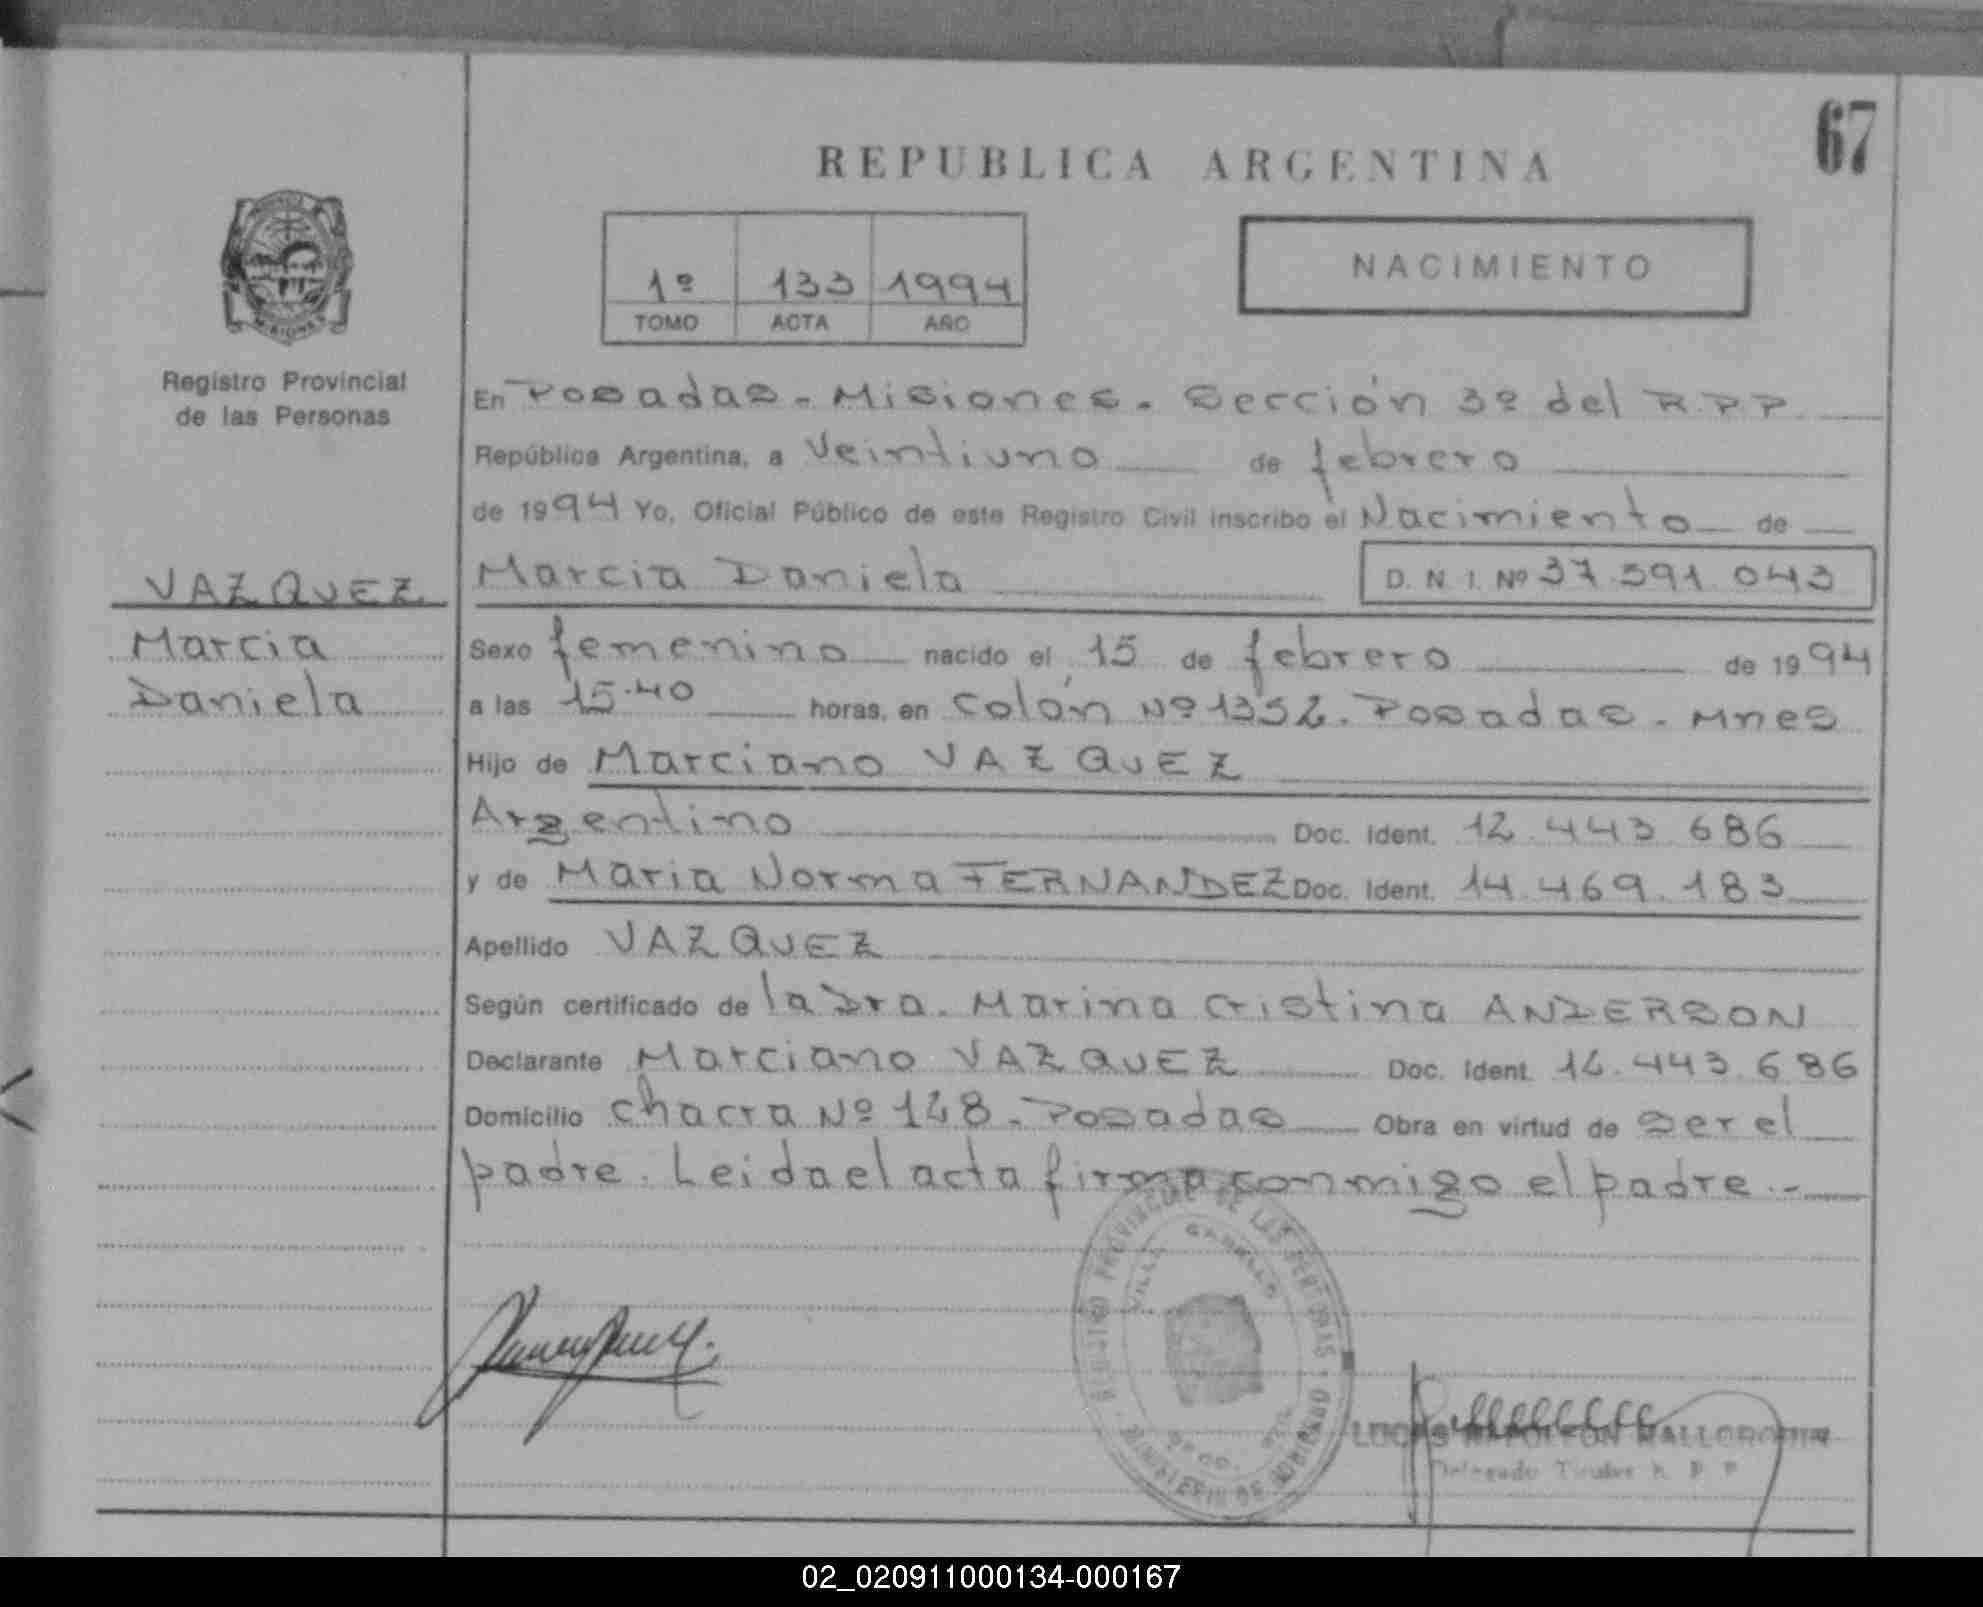 67
REPUBLICA ARGENTINA
1º 133 1994
TOMO ACTA AÑO
NACIMIENTO
MISIONES
Registro Provincial
de las Personas
En Posadas - Misiones. Sección 3º del R.P.P.
República Argentina, a Veintiuno de febrero
de 1994 Yo, Oficial Público de este Registro Civil inscribo el Nacimiento de
VAZQUEZ Marcia Daniela D. N. I. Nº 37.591.043
Marcia Sexo femenino nacido el 15 de febrero de 1994
Daniela a las 15.40 horas, en Colón Nº 1352. Posadas - Mnes
Hijo de Marciano VAZQUEZ
Argentino Doc. Ident. 12.443.686
y de Maria Norma FERNANDEZ Doc. Ident. 14.469.183
Apellido VAZQUEZ
Según certificado de la Dra. Marina Cristina ANDERSON
Declarante Marciano VAZQUEZ Doc. Ident. 12.443.686
Domicilio Chacra Nº 128. Posadas Obra en virtud de ser el
padre. Leida el acta firma conmigo el padre.-
REGISTRO PROVINCIAL DE LAS PERSONAS
VILLA CABELLO
MINISTERIO DE GOBIERNO
LUCAS NAPOLEON
Delegado Titular R. P. P.
02_020911000134-000167